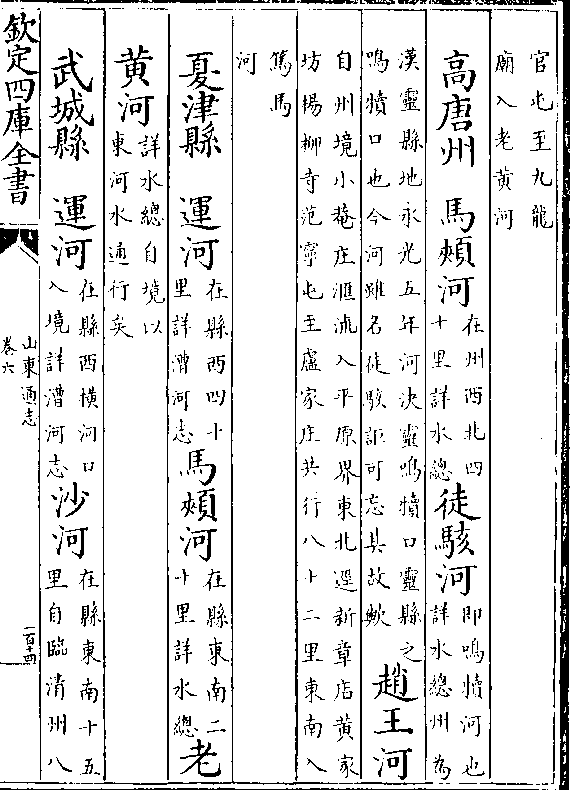 官屯至九龍
廟入老黄河
高唐州 馬頰河 在州西北四
十里詳水總 徒駭河 即鳴犢河也
詳水總州為
漢靈縣地永光五年河決靈鳴犢口靈縣之
鳴犢口也今河雖名徒駭詎可忘其故歟 趙王河
自州境小菴庄滙流入平原界東北逕新章店黄家
坊楊柳寺范寧屯至盧家庄共行八十二里東南入
篤馬
河
夏津縣 運河 在縣西四十
里詳漕河志 馬頰河 在縣東南二
十里詳水總 老
黄河 詳水總自境以
東河水通行矣
武城縣 運河 在縣西横河口
入境詳漕河志 沙河 在縣東南十五
里自臨清州八
欽定四庫全書
山東通志
卷六
一百十四